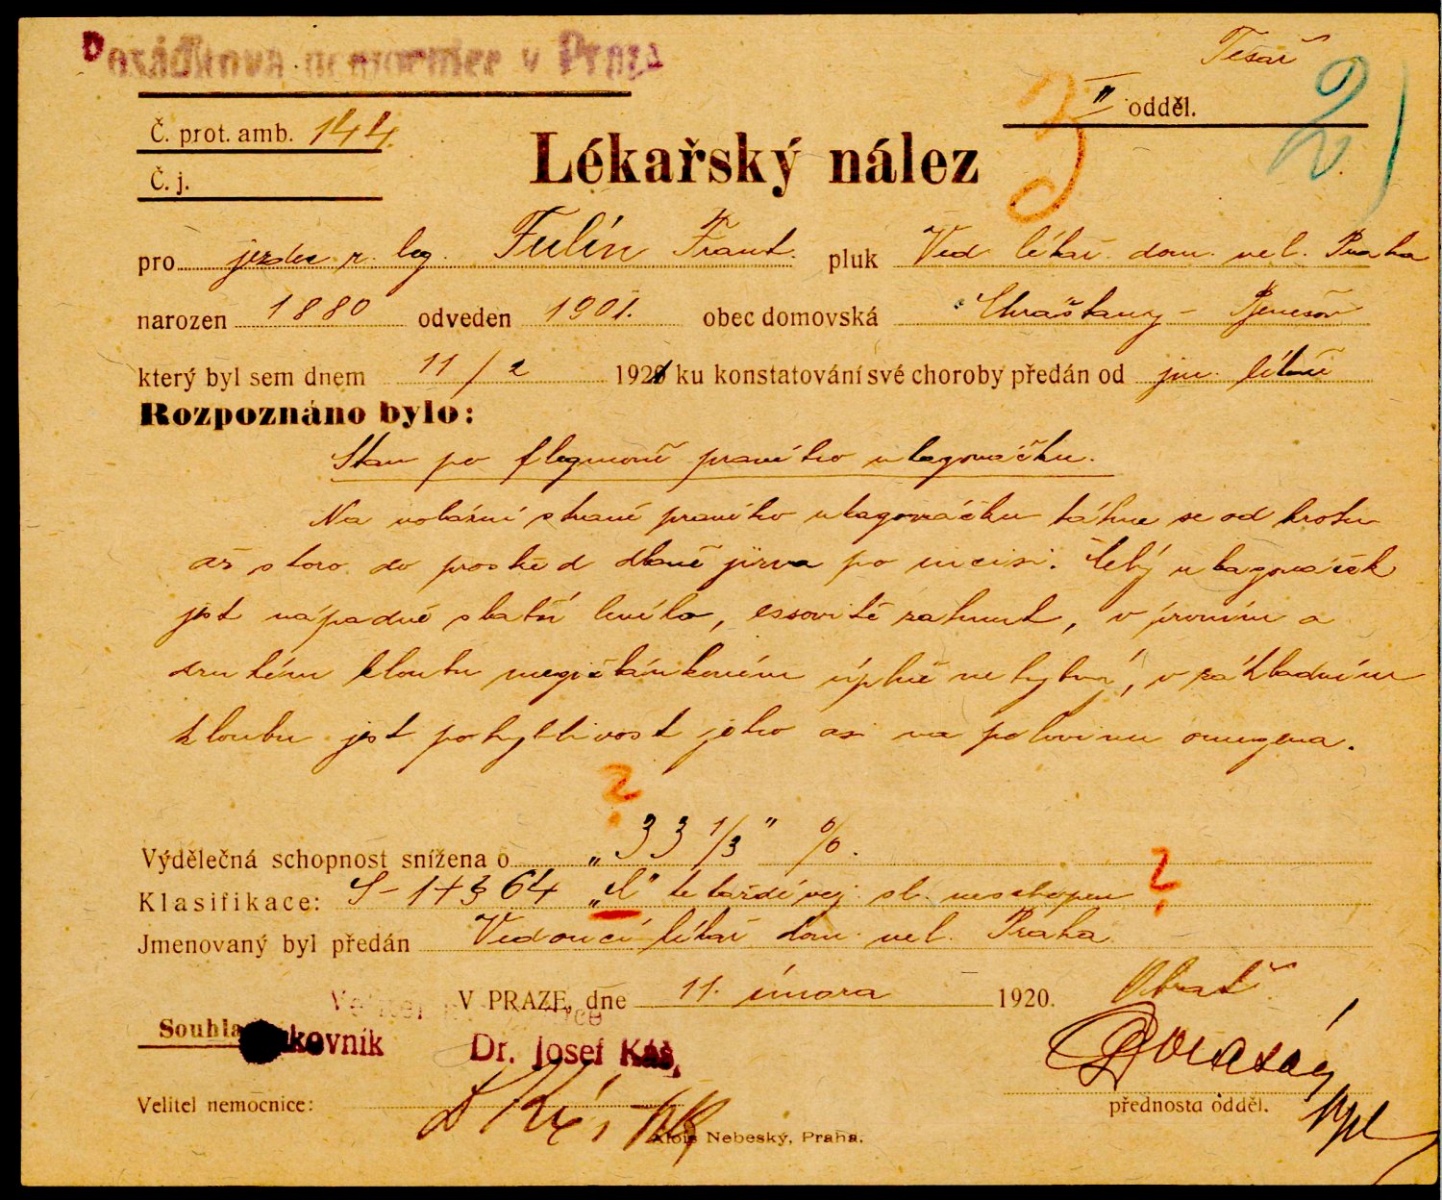 v Praze
Tesař
II odděl.
Č. prot. amb. 144.
Č. j.
Lékařský nález
pro jezdce r. leg. Fulín Frant. pluk Ved lékař. dom. vel. Praha
narozen 1880 odveden 1901. obec domovská Chrášťany - Benešov
který byl sem dnem 11/2 1920 ku konstatování své choroby předán od jm. lékaře
Rozpoznáno bylo:
Stav po flegmoně pravého ukazováčku.
Na volární straně pravého ukazováčku táhne se od hrotu
až skoro do prostřed dlaně jizva po incisi. Celý ukazováček
jest nápadně slabší, essovitě zahnut, v prvním a
druhém kloubu mezičlánkovém úplně nehybný, v základním
kloubu jest pohyblivost jeho asi na polovinu omezena.
?
Výdělečná schopnost snížena o „33 1/3" %.
Klasifikace: S-1+364 „C" k každé voj. sl. neschopen ?
Jmenovaný byl předán Vedoucí lékař dom. vel. Praha
V PRAZE, dne 11. února 1920.
Souhla
kovník Dr. Josef Káš,
Velitel nemocnice:
přednosta odděl.
Alois Nebeský, Praha.